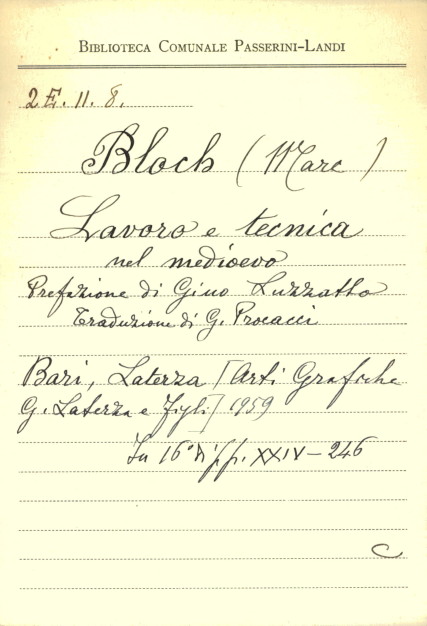 BIBLIOTECA COMUNALE PASSERINI-LANDI
2E. II. 8.
Bloch (Marc)
Lavoro e tecnica
nel medioevo
Prefazione di Gino Luzzatto
Traduzione di G. Procacci
Bari, Laterza [Arti Grafiche
G. Laterza e Figli] 1959
In 16° di pp. XXIV - 246
C